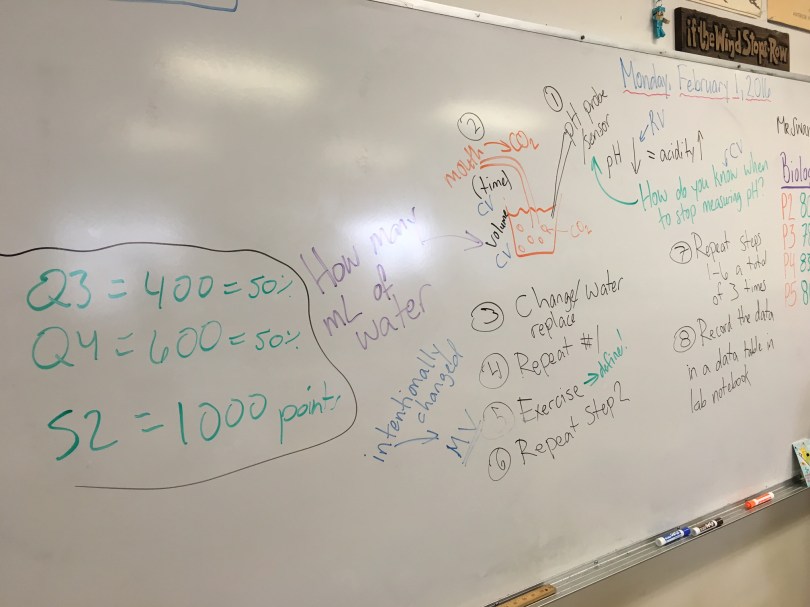 if the Wind Stops-Row
Monday, February 1, 2016
Q3 = 400 = 50%
Q4 = 600 = 50%
S2 = 1000 points
How many
mL of
water
intentionally
changed
MV
①
pH probe
/sensor
②
mouth → CO2
(time)
CV
Volume
CV
CO2
RV
pH ↓ = acidity ↑
CV
How do you know when
to stop measuring pH?
③ Change/water
replace
④ Repeat #1
⑤ Exercise → define!
⑥ Repeat step 2
⑦ Repeat steps
1-6 a total
of 3 times
⑧ Record the data
in a data table in
lab notebook
P2
P3
P4
P5